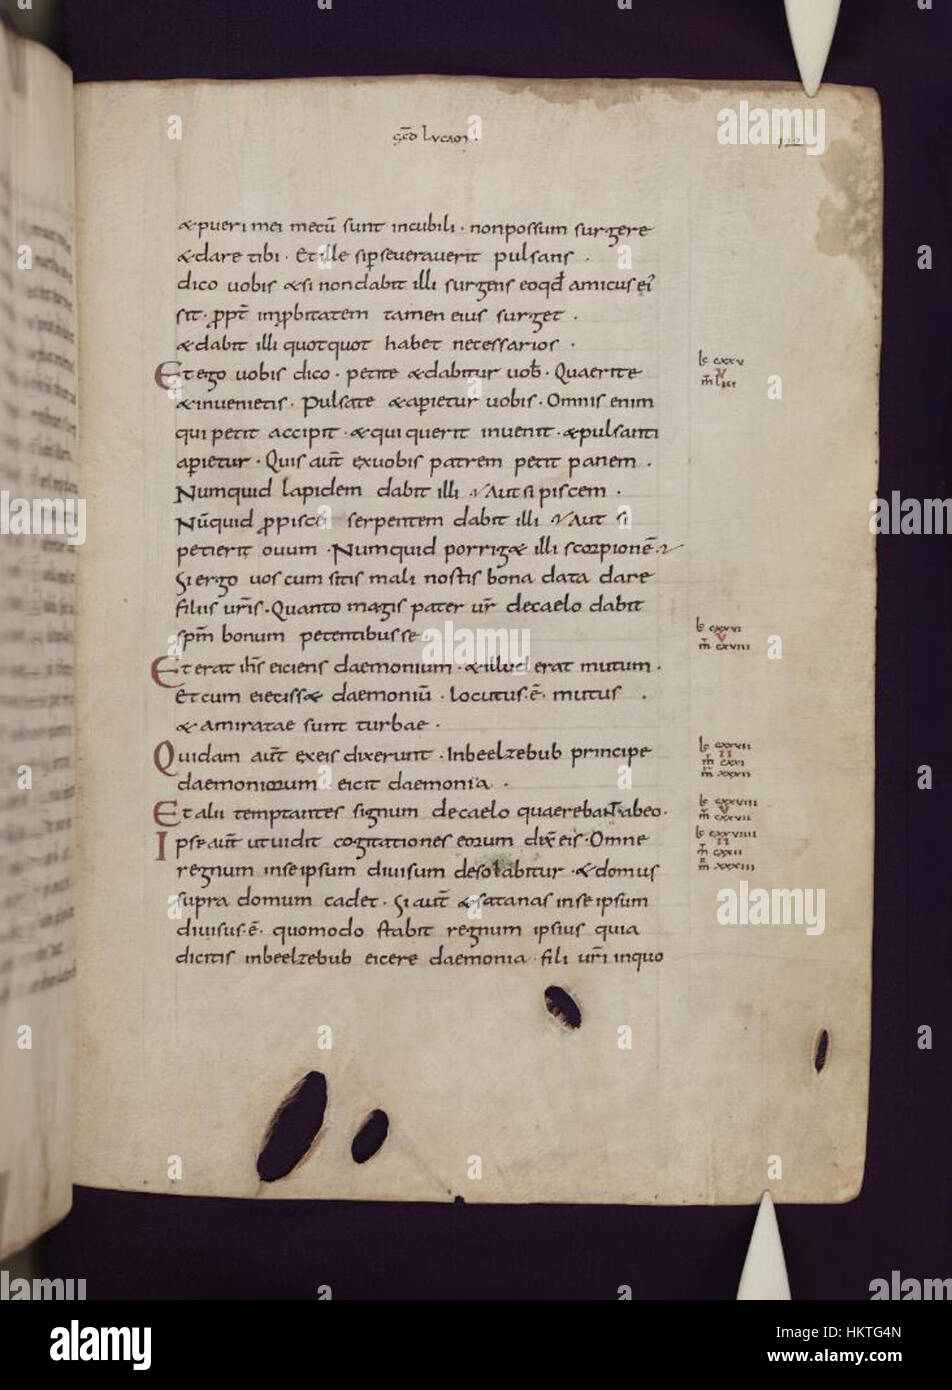 scd̄ Lucam ·
122
& pueri mei mecū sunt incubili · non possum surgere
& dare tibi · Et ille si pseuerauerit pulsans ·
dico uobis & si non dabit illi surgens eo qd̄ amicus ei'
sit · ꝓpt̄ inpbitatem tamen eius surget ·
& dabit illi quotquot habet necessarios ·
Et ego uobis dico · petite & dabitur uob̄ · Quaerite
& inuenietis · Pulsate & aperietur uobis · Omnis enim
qui petit accipit · & qui querit inuenit · & pulsanti
aperietur · Quis aut̄ ex uobis patrem petit panem ·
Numquid lapidem dabit illi · Aut si piscem ·
Nūquid ꝓ pisce serpentem dabit illi · Aut si
petierit ouum · Numquid porrig& illi scorpionē ·
Si ergo uos cum sitis mali nostis bona data dare
filiis ur̄is · Quanto magis pater ur̄ de caelo dabit
spm̄ bonum petentibus se ·
Et erat ih̄s eiciens daemonium · & illud erat mutum ·
Et cum eieciss& daemoniū · locutus · ē · mutus ·
& amiratae sunt turbae ·
Quidam aut̄ ex eis dixerunt · In beelzebub principe
daemoniorum eicit daemonia ·
Et alii temptantes signum de caelo quaerebant ab eo ·
Ipse aut̄ ut uidit cogitationes eorum dix̄ eis · Omne
regnum in se ipsum diuisum desolabitur · & domus
supra domum cadet · Si aut̄ & satanas in se ipsum
diuisus · ē · quomodo stabit regnum ipsius quia
dicitis in beelzebub eicere daemonia · fili ur̄i in quo
lc cxxv
v
lc cxxvi
v
m̄ cxviii
lc cxxvii
ii
m̄ cxxi
lc cxxviii
v
m̄ cxvii
lc cxxviiii
ii
m̄ cxxii
m̄ xxxiii
alamy
alamy
Image ID: HKTG4N
www.alamy.com